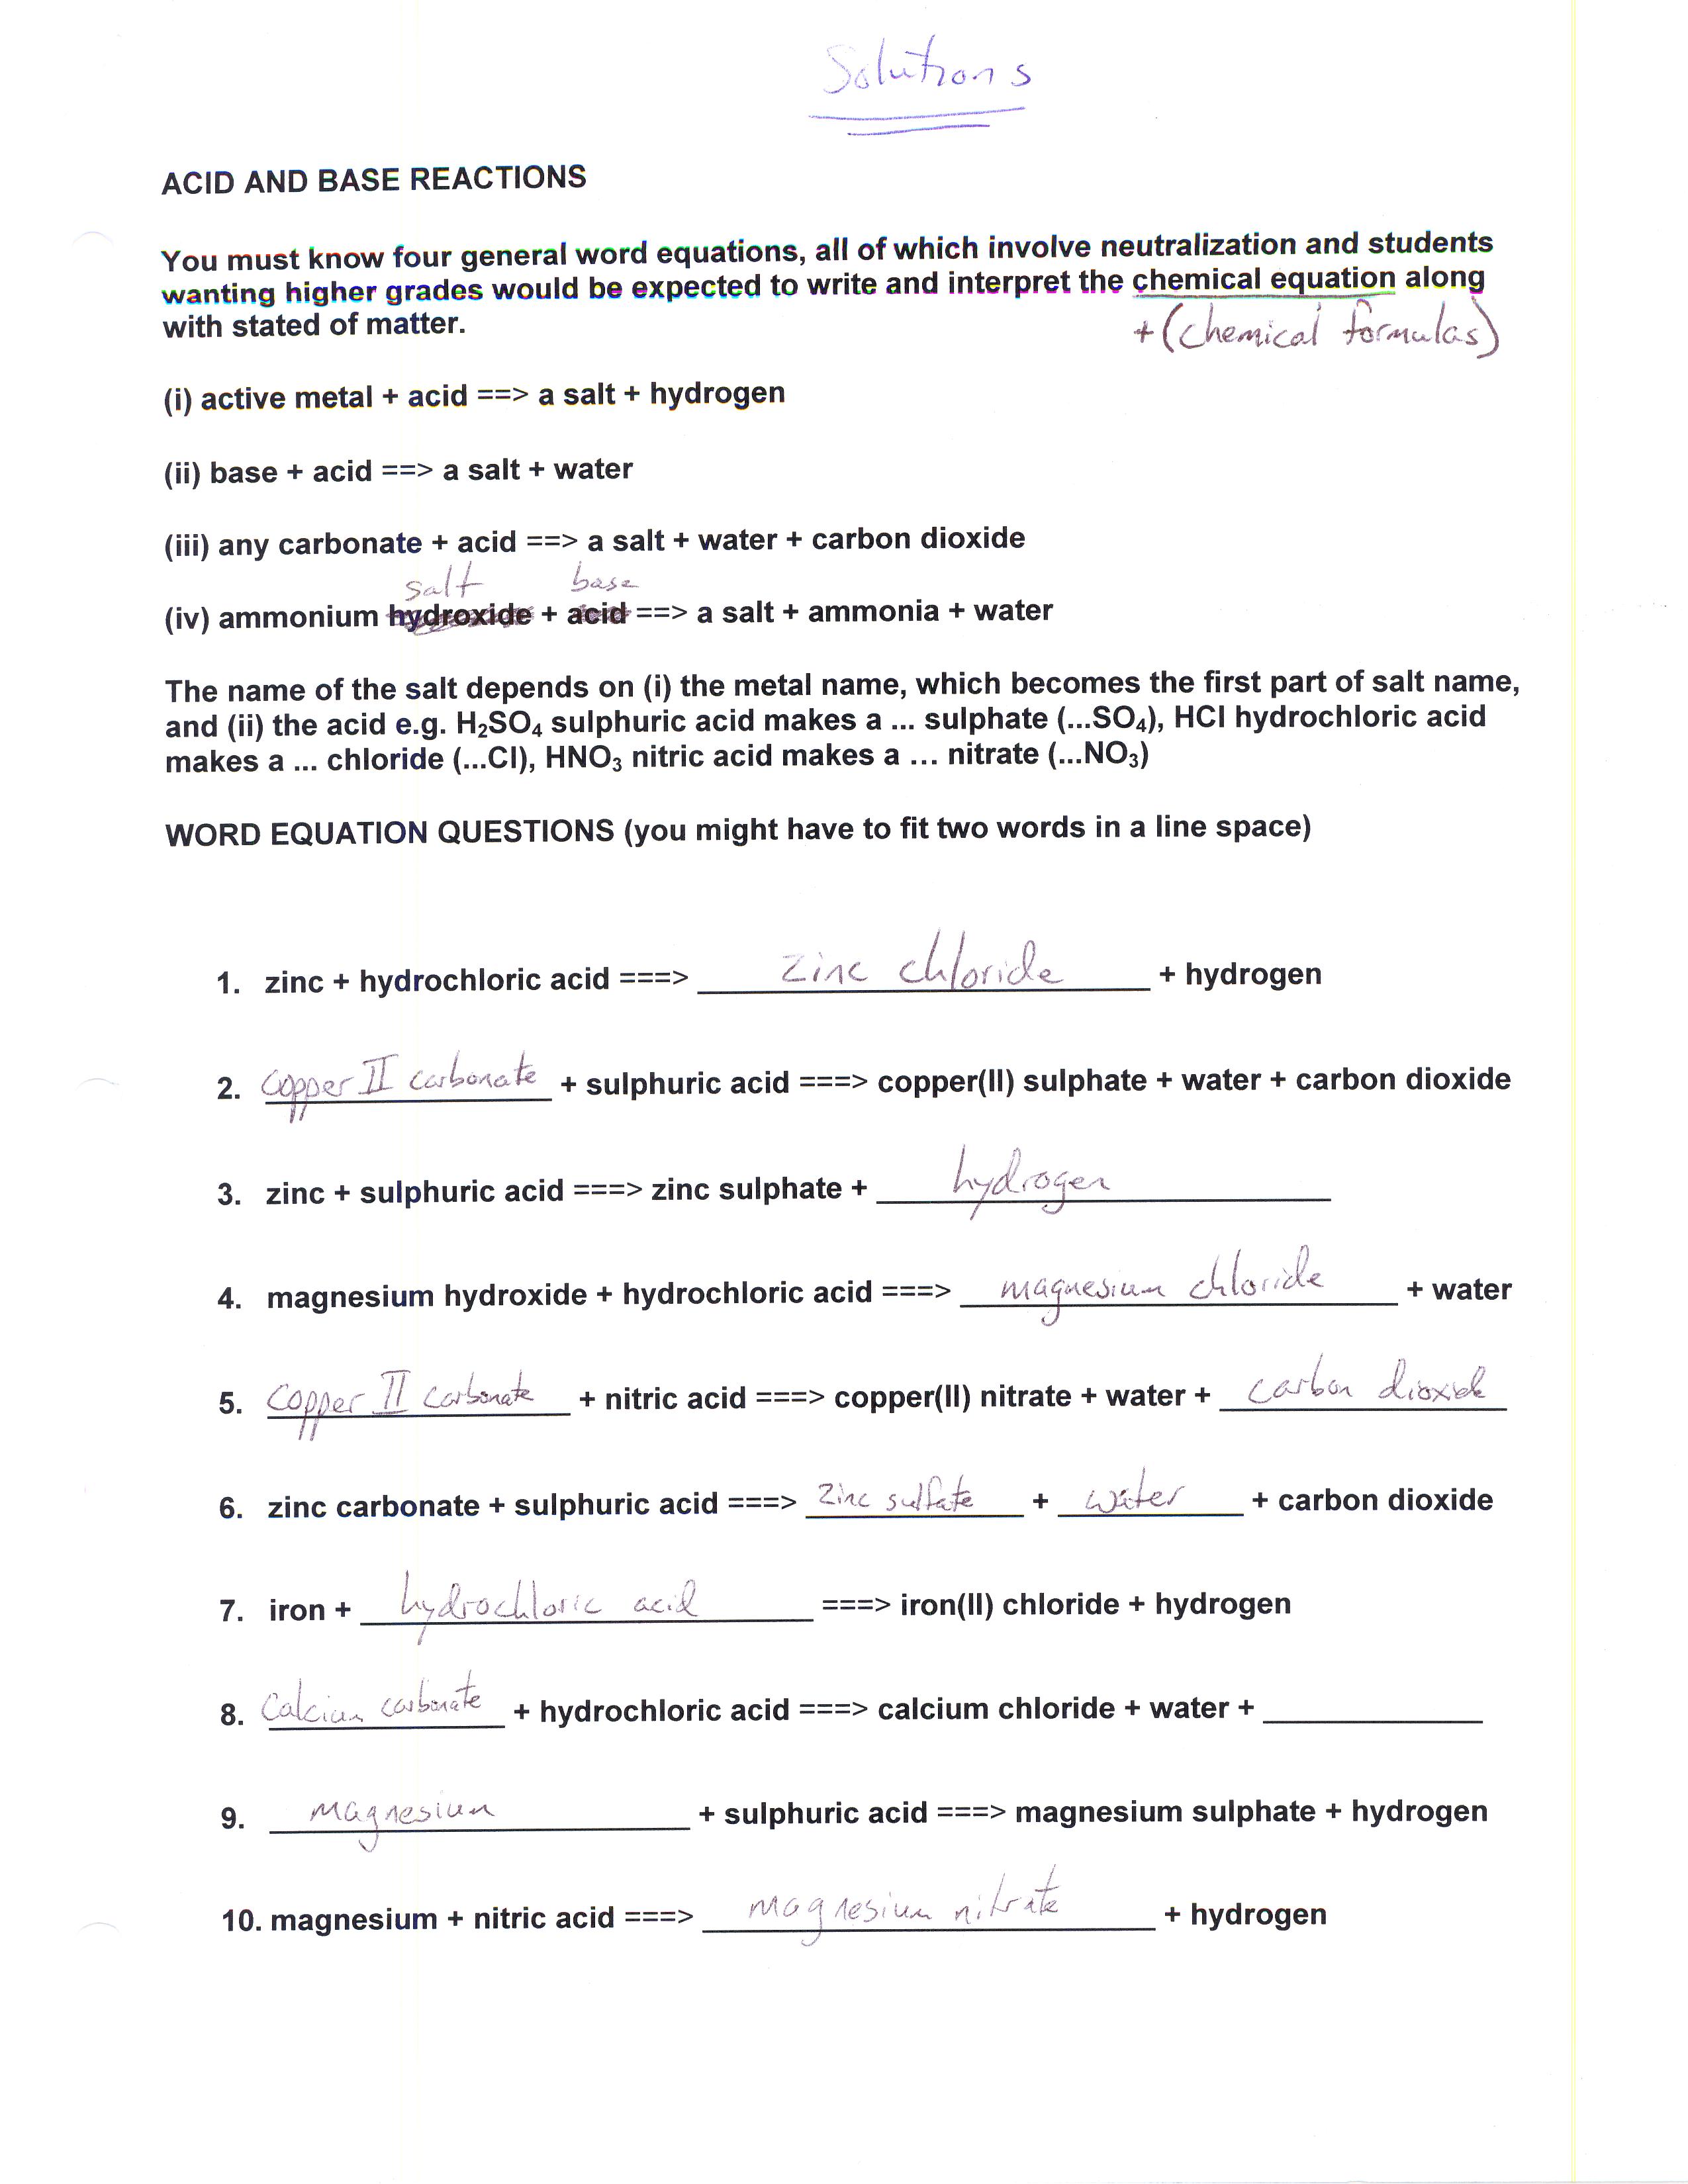 Solutions
ACID AND BASE REACTIONS
You must know four general word equations, all of which involve neutralization and students
wanting higher grades would be expected to write and interpret the chemical equation along
with stated of matter.
+ (chemical formulas)
(i) active metal + acid ==> a salt + hydrogen
(ii) base + acid ==> a salt + water
(iii) any carbonate + acid ==> a salt + water + carbon dioxide
salt base
(iv) ammonium hydroxide + acid ==> a salt + ammonia + water
The name of the salt depends on (i) the metal name, which becomes the first part of salt name,
and (ii) the acid e.g. H₂SO₄ sulphuric acid makes a ... sulphate (...SO₄), HCl hydrochloric acid
makes a ... chloride (...Cl), HNO₃ nitric acid makes a ... nitrate (...NO₃)
WORD EQUATION QUESTIONS (you might have to fit two words in a line space)
1. zinc + hydrochloric acid ===> zinc chloride + hydrogen
2. Copper II carbonate + sulphuric acid ===> copper(II) sulphate + water + carbon dioxide
3. zinc + sulphuric acid ===> zinc sulphate + hydrogen
4. magnesium hydroxide + hydrochloric acid ===> magnesium chloride + water
5. Copper II carbonate + nitric acid ===> copper(II) nitrate + water + carbon dioxide
6. zinc carbonate + sulphuric acid ===> Zinc sulfate + water + carbon dioxide
7. iron + hydrochloric acid ===> iron(II) chloride + hydrogen
8. Calcium carbonate + hydrochloric acid ===> calcium chloride + water + ________
9. magnesium + sulphuric acid ===> magnesium sulphate + hydrogen
10. magnesium + nitric acid ===> magnesium nitrate + hydrogen